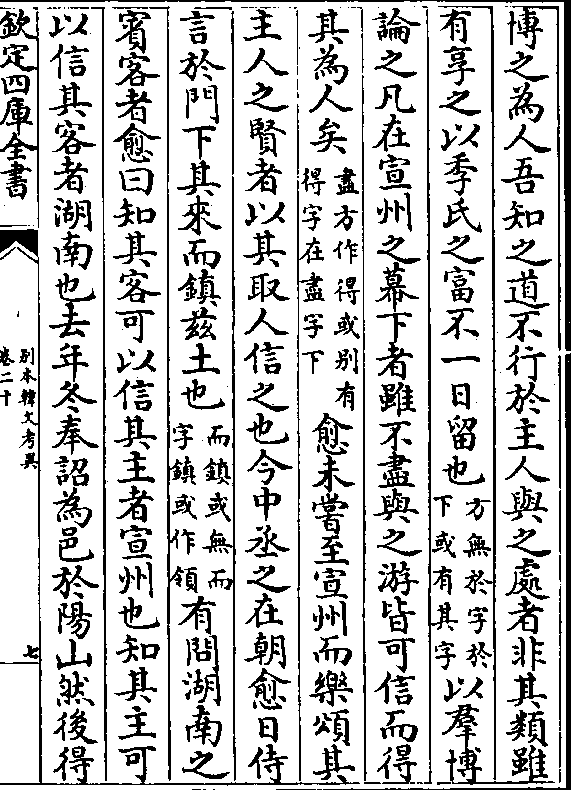 博之為人吾知之道不行於主人與之處者非其類雖
有享之以季氏之富不一日留也方無於字於下或有其字以羣博
論之凡在宣州之幕下者雖不盡與之游皆可信而得
其為人矣盡方作得或别有得字在盡字下愈未嘗至宣州而樂頌其
主人之賢者以其取人信之也今中丞之在朝愈日侍
言於門下其來而鎮兹土也而鎮或無而字鎮或作領有問湖南之
賓客者愈曰知其客可以信其主者宣州也知其主可
以信其客者湖南也去年冬奉詔為邑於陽山然後得
欽定四庫全書
别本韓文考異
卷二十
七